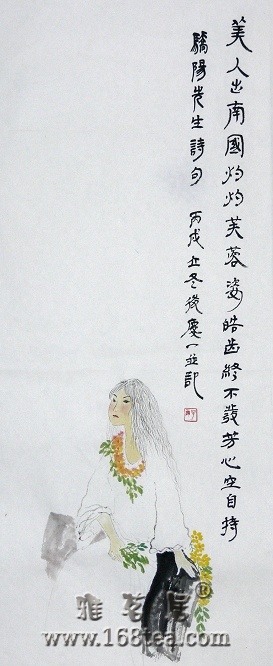 美人出南國灼灼芙蓉姿皓齒終不發芳心空自持
驕陽先生詩句 丙戌立冬後慶一並記
雅茗居®
www.168tea.com